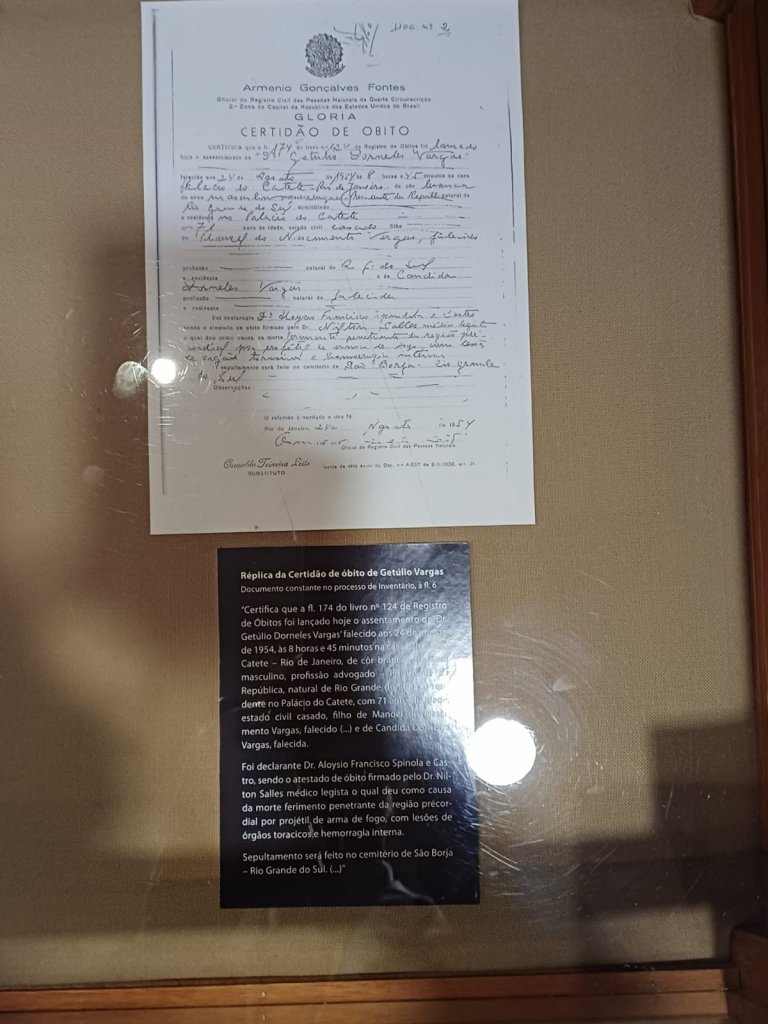 Doc nº 2
Armenio Gonçalves Fontes
Oficial do Registro Civil das Pessoas Naturais da Quarta Circunscrição
2.ª Zona da Capital da Republica dos Estados Unidos do Brasil
GLORIA
CERTIDÃO DE OBITO
CERTIFICA que a fl. 174 do livro nº 124 de Registro de Obitos foi lançado
hoje o assentamento de "Dr Getulio Dorneles Vargas"
falecido aos 24 de Agosto de 1954 ás 8 horas e 45 minutos
Palacio do Catete - Rio de Janeiro, de côr branca
do sexo masculino, Presidente da Republica natural de
Rio Grande do Sul
e residente no Palacio do Catete
com 71 anos de idade, estado civil casado filho
de Manoel do Nascimento Vargas, falecido
profissão natural de R. G. do Sul
e residente e de Candida
Dorneles Vargas
profissão natural de falecida
e residente
Foi declarante Dr Aloysio Francisco Spinola e Castro
sendo o atestado de óbito firmado pelo Dr. Nilton Salles médico legista
o qual deu como causa da morte ferimento penetrante da região pré-
cordial por projétil de arma de fogo, com lesões
de orgãos toracicos e hemorragia interna
O sepultamento será feito no cemiterio de São Borja - Rio Grande
do Sul
Observações
O referido é verdade e dou fé
Rio de Janeiro 24 de Agosto de 1954
Oficial do Registro Civil das Pessoas Naturais
Oswaldo Teixeira Leite
SUBSTITUTO
Réplica da Certidão de óbito de Getúlio Vargas
Documento constante no processo de Inventário, à fl. 6
"Certifica que a fl. 174 do livro nº 124 de Registro
de Óbitos foi lançado hoje o assentamento de 'Dr.
Getúlio Dorneles Vargas' falecido aos 24 de
de 1954, às 8 horas e 45 minutos na
Catete – Rio de Janeiro, de côr
masculino, profissão advogado
República, natural de Rio Grande
dente no Palácio do Catete, com 71
estado civil casado, filho de Manoel
mento Vargas, falecido (...) e de Candida
Vargas, falecida.
Foi declarante Dr. Aloysio Francisco Spinola e Cas-
tro, sendo o atestado de óbito firmado pelo Dr. Nil-
ton Salles médico legista o qual deu como causa
da morte ferimento penetrante da região précor-
dial por projétil de arma de fogo, com lesões de
órgãos toracicos e hemorragia interna.
Sepultamento será feito no cemitério de São Borja
– Rio Grande do Sul. (...)"